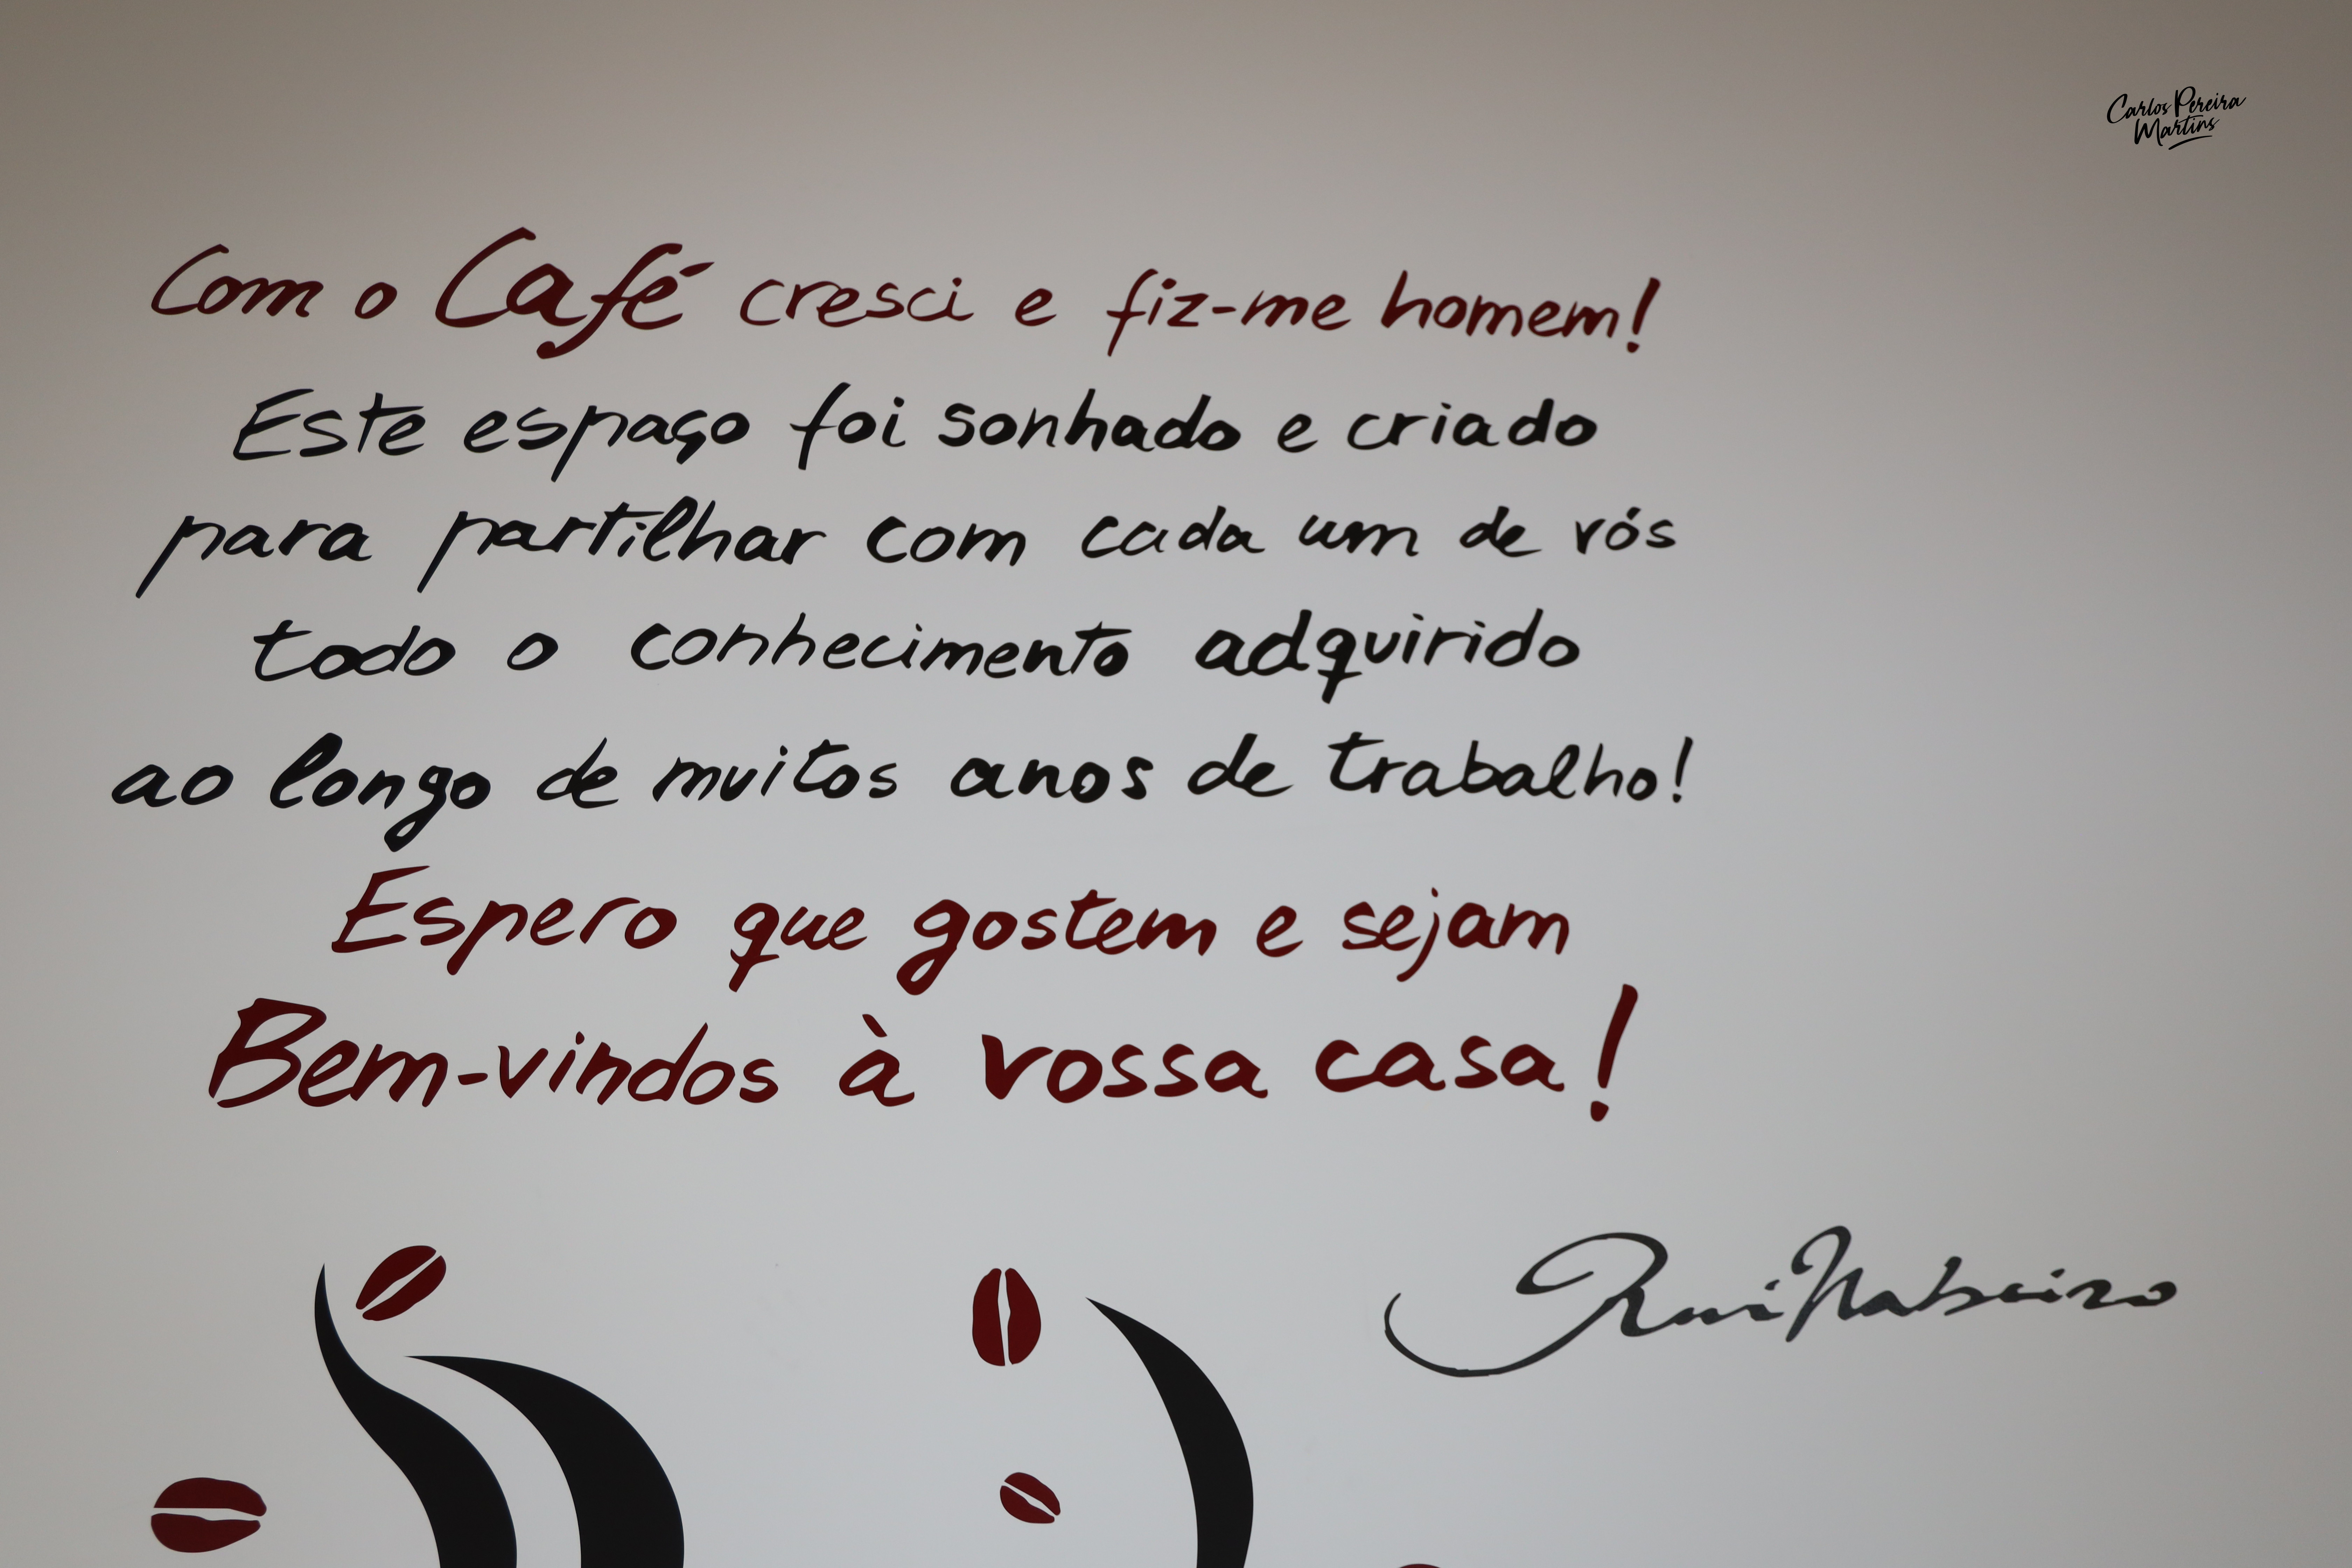 Carlos Pereira
Martins
Com o Café cresci e fiz-me homem!
Este espaço foi sonhado e criado
para partilhar com cada um de vós
todo o conhecimento adquirido
ao longo de muitos anos de trabalho!
Espero que gostem e sejam
Bem-vindos à vossa casa!
Rui Nabeiro